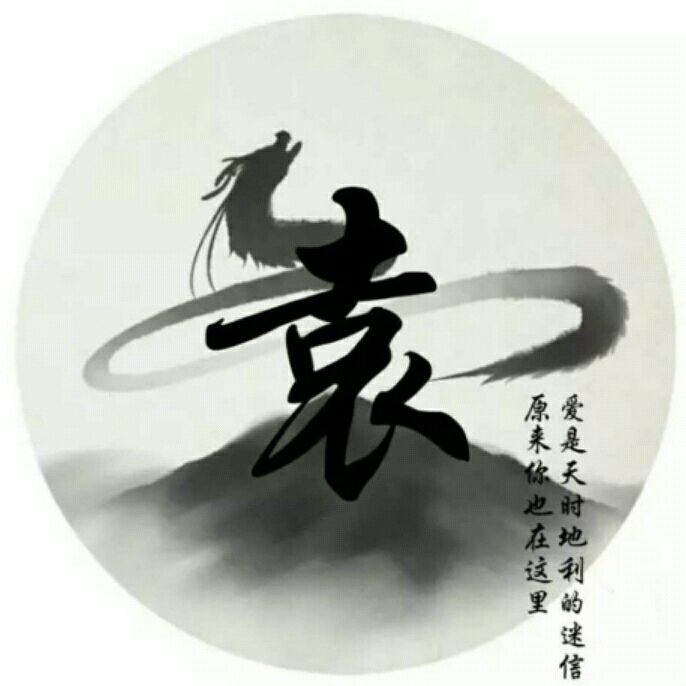 袁
爱是天时地利的迷信
原来你也在这里